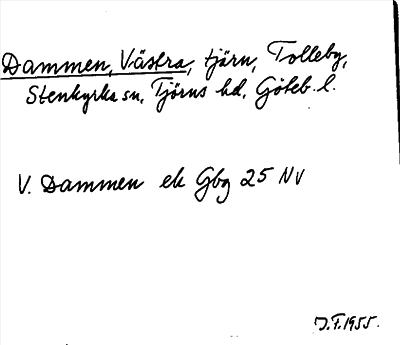 Dammen, Västra, tjärn, Tolleby,
Stenkyrka sn, Tjörns hd, Göteb. l.
V. Dammen ek Gbg 25 NV
J.F. 1955.